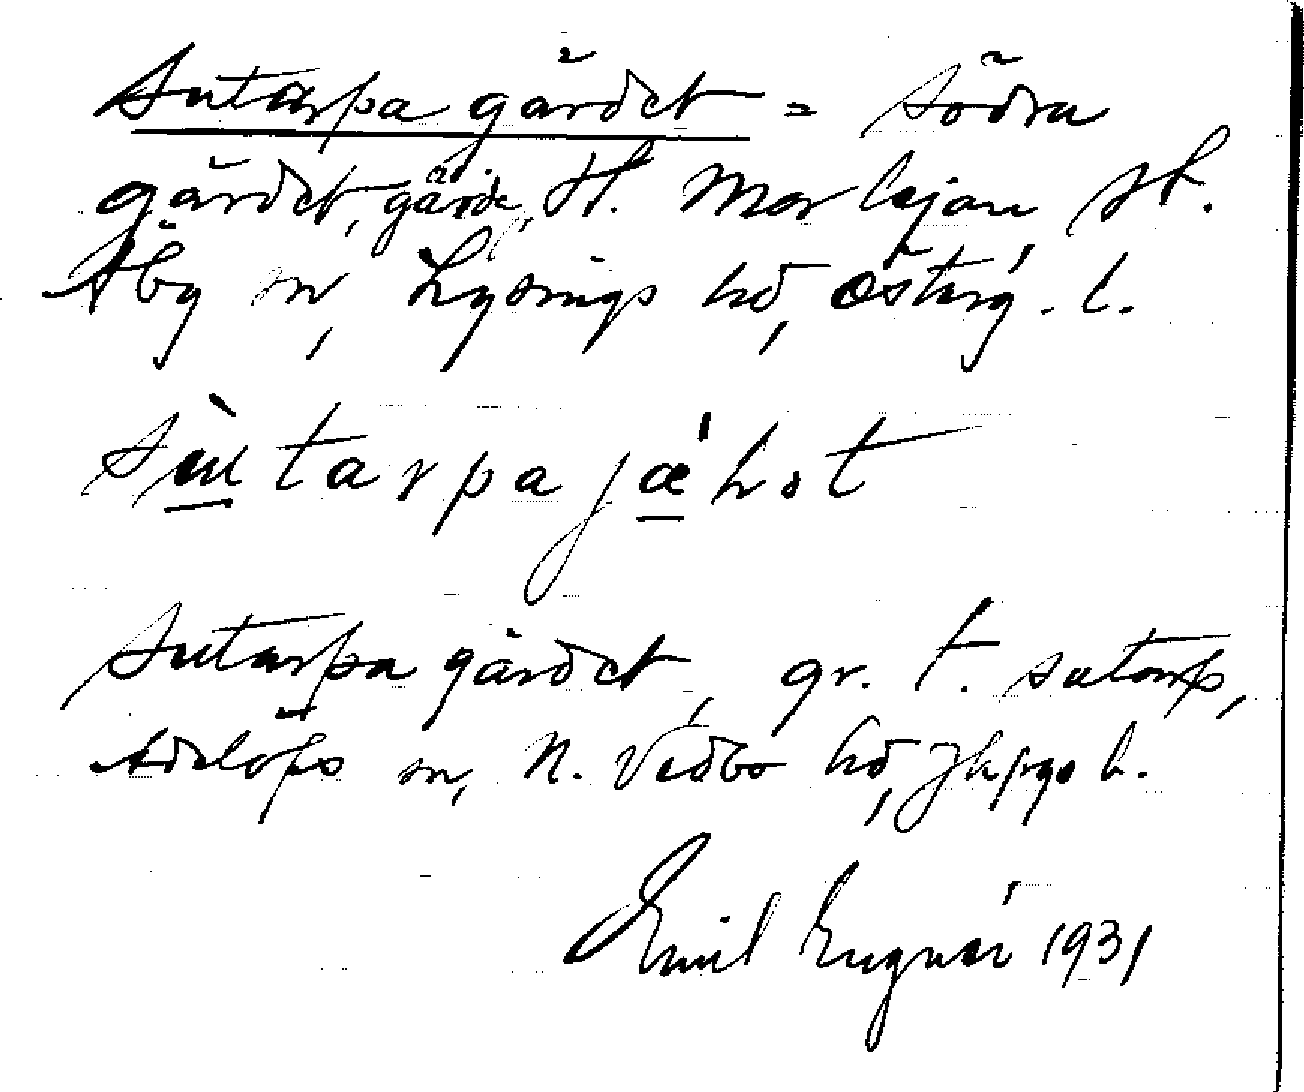 Sutarpa gärdet = Södra
gärdet, gärde, t. Morlejan st.
Åby sn, Lysings hd, Österg. l.
sùtarpajæ̍hot
Sutarpa gärdet, gr. t. sutorp,
Adelöfs sn, N. Vedbo hd, Jkpgs l.
Emil Engnér 1931